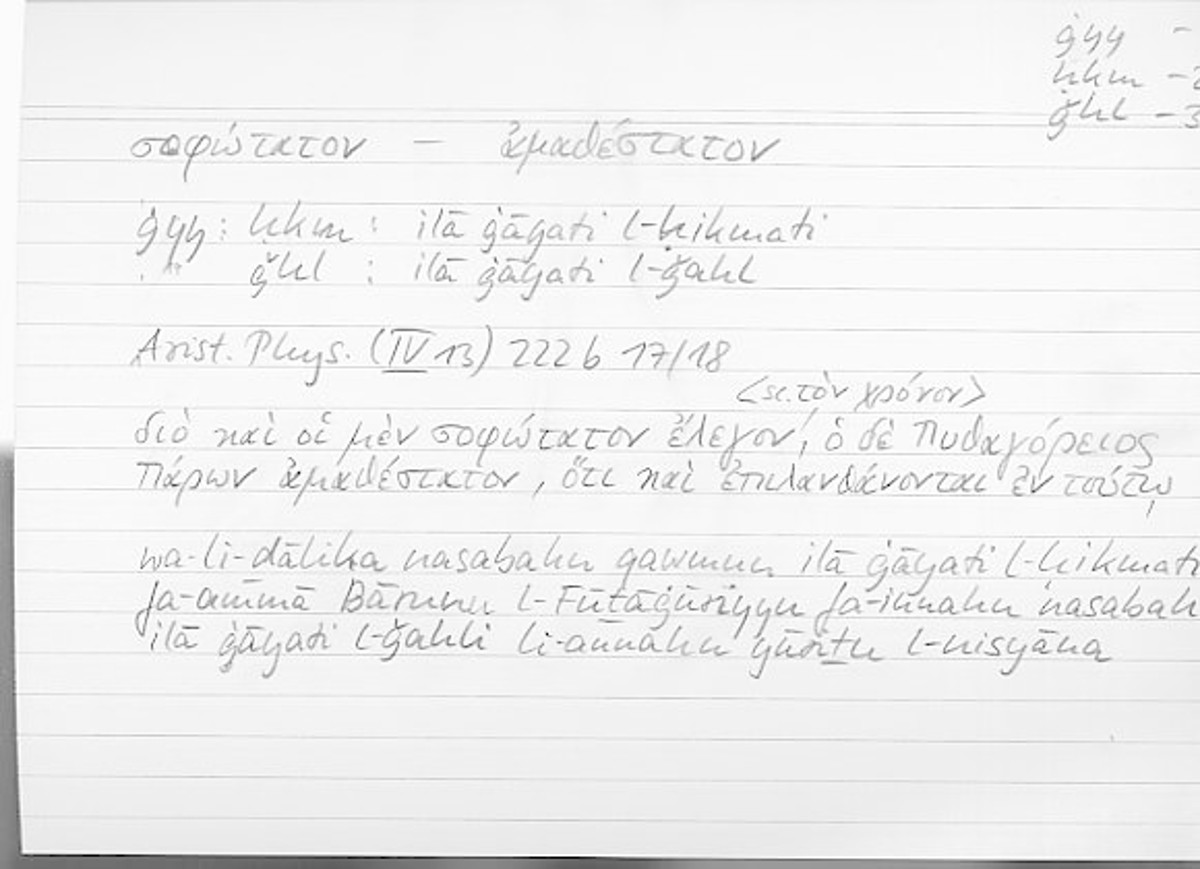 ġyy -
ḥkm - 2
ǧhl - 3
σοφώτατον — ἀμαθέστατον
ġyy : ḥkm : ilā ġāyati l-ḥikmati
" ǧhl : ilā ġāyati l-ǧahl
Arist. Phys. (IV 13) 222 b 17/18
<sc. τὸν χρόνον>
διὸ καὶ οἱ μὲν σοφώτατον ἔλεγον, ὁ δὲ Πυθαγόρειος
Πάρων ἀμαθέστατον, ὅτι καὶ ἐπιλανθάνονται ἐν τούτῳ
wa-li-ḏālika nasabahu qawmun ilā ġāyati l-ḥikmati
fa-ammā Bārunu l-Fūṯāġūriyyu fa-innahu nasabah
ilā ġāyati l-ǧahli li-annahu yūriṯu l-nisyāna